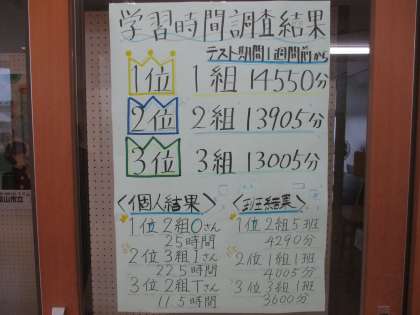 学習時間調査結果
テスト期間1週間前から
1位 1組 14550分
2位 2組 13905分
3位 3組 13005分
〈個人結果〉
1位 2組Oさん
25時間
2位 3組Iさん
22.5時間
3位 2組Tさん
11.5時間
〈班結果〉
1位 2組5班
4290分
2位 1組1班
4005分
3位 3組1班
3600分